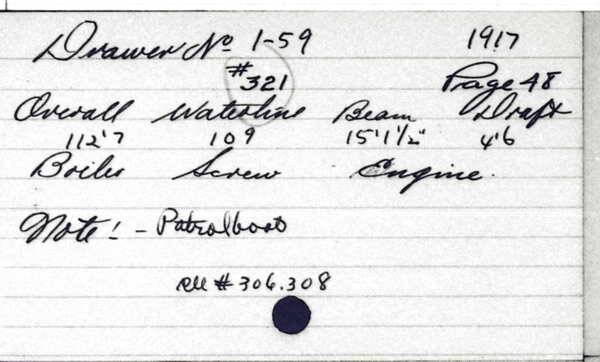 Drawer No 1-59 1917
#321 Page 48
Overall Waterline Beam Draft
112'7 109 15'1½" 4'6
Boiler Screw Engine.
Note! - Patrolboat
see #306.308